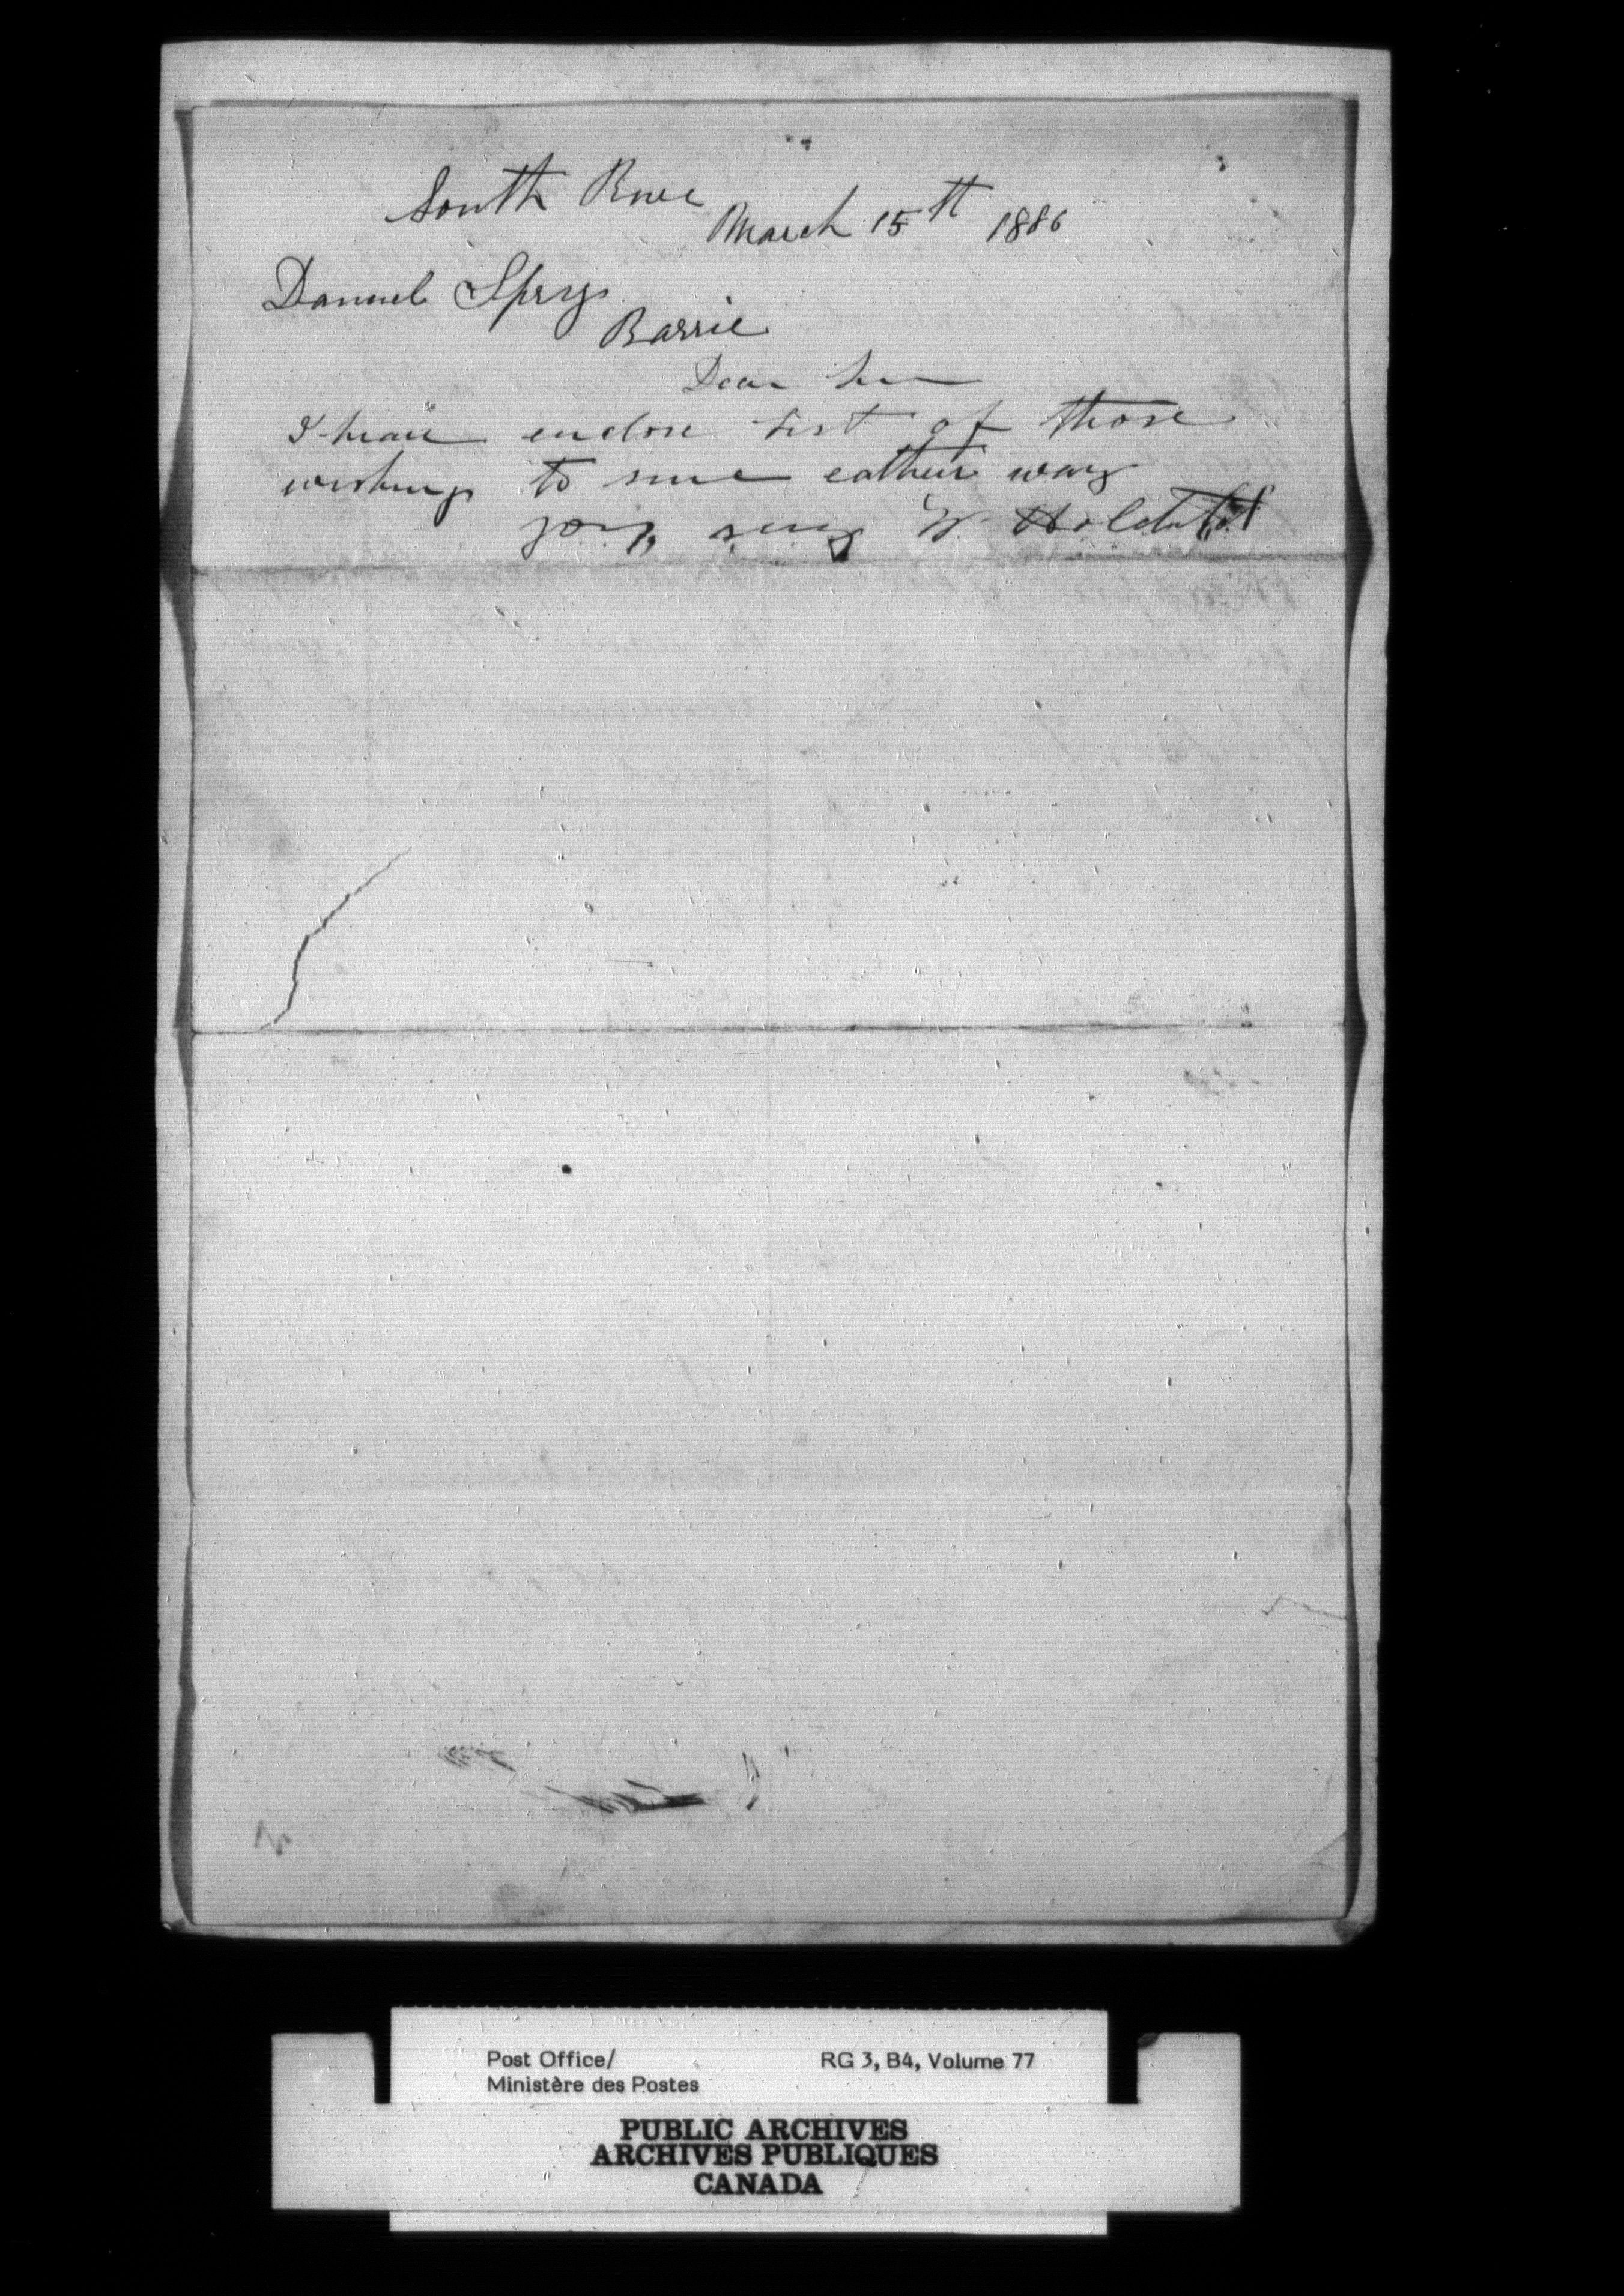 South River
March 15th 1886
Daniel Spry
Barrie
Dear Sir
I have enclose List of those
wishing to eather way
yours W. Holditch
Post Office/
Ministère des Postes
RG 3, B4, Volume 77
PUBLIC ARCHIVES
ARCHIVES PUBLIQUES
CANADA